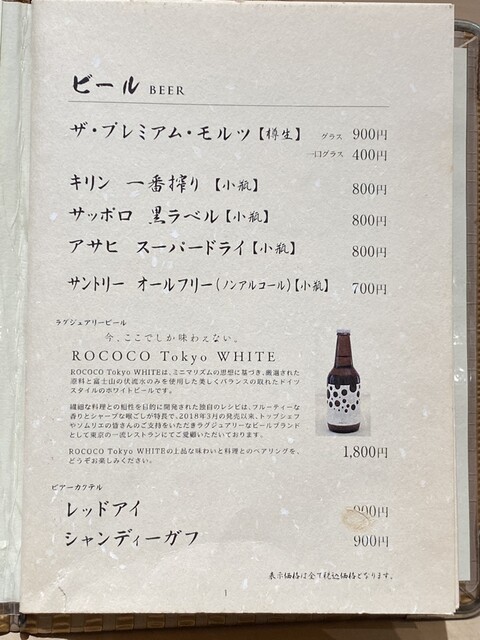 ビール BEER
ザ・プレミアム・モルツ【樽生】 グラス 900円
一口グラス 400円
キリン 一番搾り【小瓶】 800円
サッポロ 黒ラベル【小瓶】 800円
アサヒ スーパードライ【小瓶】 800円
サントリー オールフリー(ノンアルコール)【小瓶】 700円
ラグジュアリービール
今、ここでしか味わえない。
ROCOCO Tokyo WHITE
ROCOCO Tokyo WHITEは、ミニマリズムの思想に基づき、厳選された
原料と富士山の伏流水のみを使用した美しくバランスの取れたドイツ
スタイルのホワイトビールです。
繊細な料理との相性を目的に開発された独自のレシピは、フルーティーな
香りとシャープな喉ごしが特長で、2018年3月の発売以来、トップシェフ
やソムリエの皆さんのご支持をいただきラグジュアリーなビールブランド
として東京の一流レストランにてご愛顧いただいております。
ROCOCO Tokyo WHITEの上品な味わいと料理とのペアリングを、
どうぞお楽しみください。
1,800円
ビアーカクテル
レッドアイ 900円
シャンディーガフ 900円
表示価格は全て税込価格となります。
1